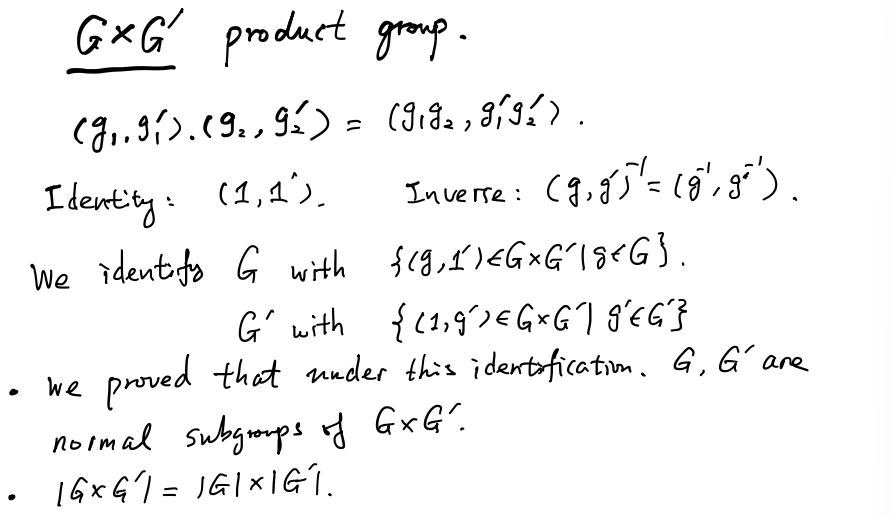 G×G′ product group.
(g₁, g₁′).(g₂, g₂′) = (g₁g₂, g₁′g₂′).
Identity: (1, 1′). Inverse: (g, g′)⁻¹ = (g⁻¹, g′⁻¹).
We identify G with {(g, 1′) ∈ G×G′ | g ∈ G}.
G′ with {(1, g′) ∈ G×G′ | g′ ∈ G′}
• We proved that under this identification. G, G′ are
normal subgroups of G×G′.
• |G×G′| = |G|×|G′|.